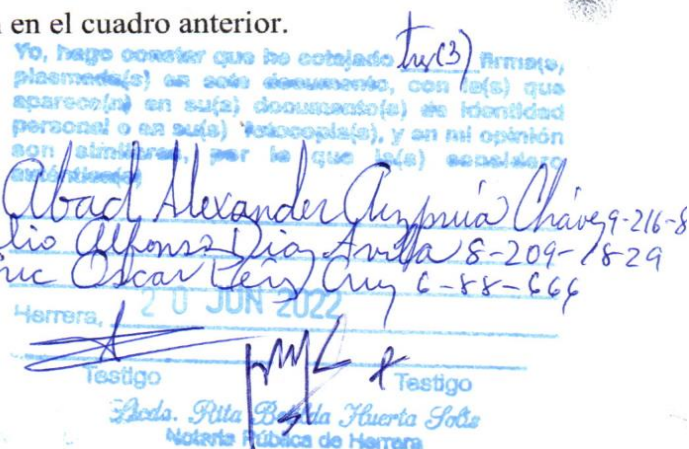 en el cuadro anterior.
Yo, hago constar que he cotejado tres(3) firma(s),
plasmada(s) en este documento, con la(s) que
aparece(n) en su(s) documento(s) de identidad
personal o en su(s) fotocopia(s), y en mi opinión
son similares, por lo que la(s) considero
auténtica(s)
Abad Alexander Chávez 9-216-8
lio Alfonso Diaz Avila 8-209-1829
ric Oscar Cruz 6-88-666
Herrera, 20 JUN 2022
Testigo Testigo
Licda. Rita Huerta Solis
Notaria Pública de Herrera